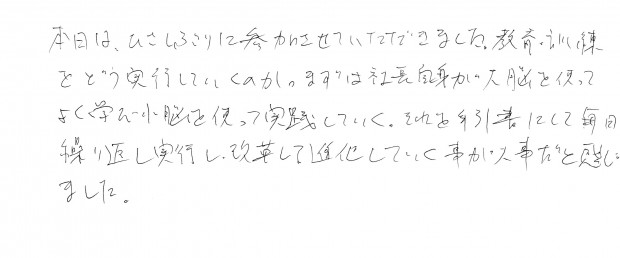 本日は、ひさしぶりに参加させていただきました。教育・訓練
をどう実行していくのか。まずは社長自身が大脳を使って
よく学び小脳を使って実践していく。それを手引書にして毎日
繰り返し実行し、改革して進化していく事が大事だと感じ
ました。